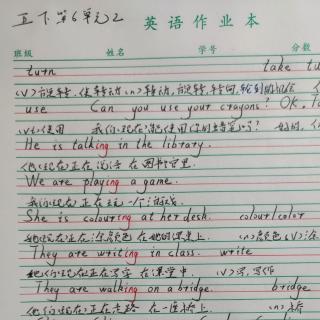 五下第6单元2
英语作业本
班级 姓名 学号 分数
turn take tu
<v>旋转,使转动 <n>转动,旋转,转向,轮到
use Can you use your crayons? Ok, I
<v>使用 我们现在能使用你的蜡笔吗? 好的,
He is talking in the library.
他现在正在说话 在图书室里.
We are playing a game.
我们现在正在玩一个游戏.
She is colouring at her desk. colour/color
她现在正在涂颜色 在她的课桌上. <n>颜色 <v>涂
They are writing in class. write
她们现在正在写字 在课堂中. <v>写,写作
They are walking on a bridge. bridge
他们现在正在走路 在一座桥上. <n>桥